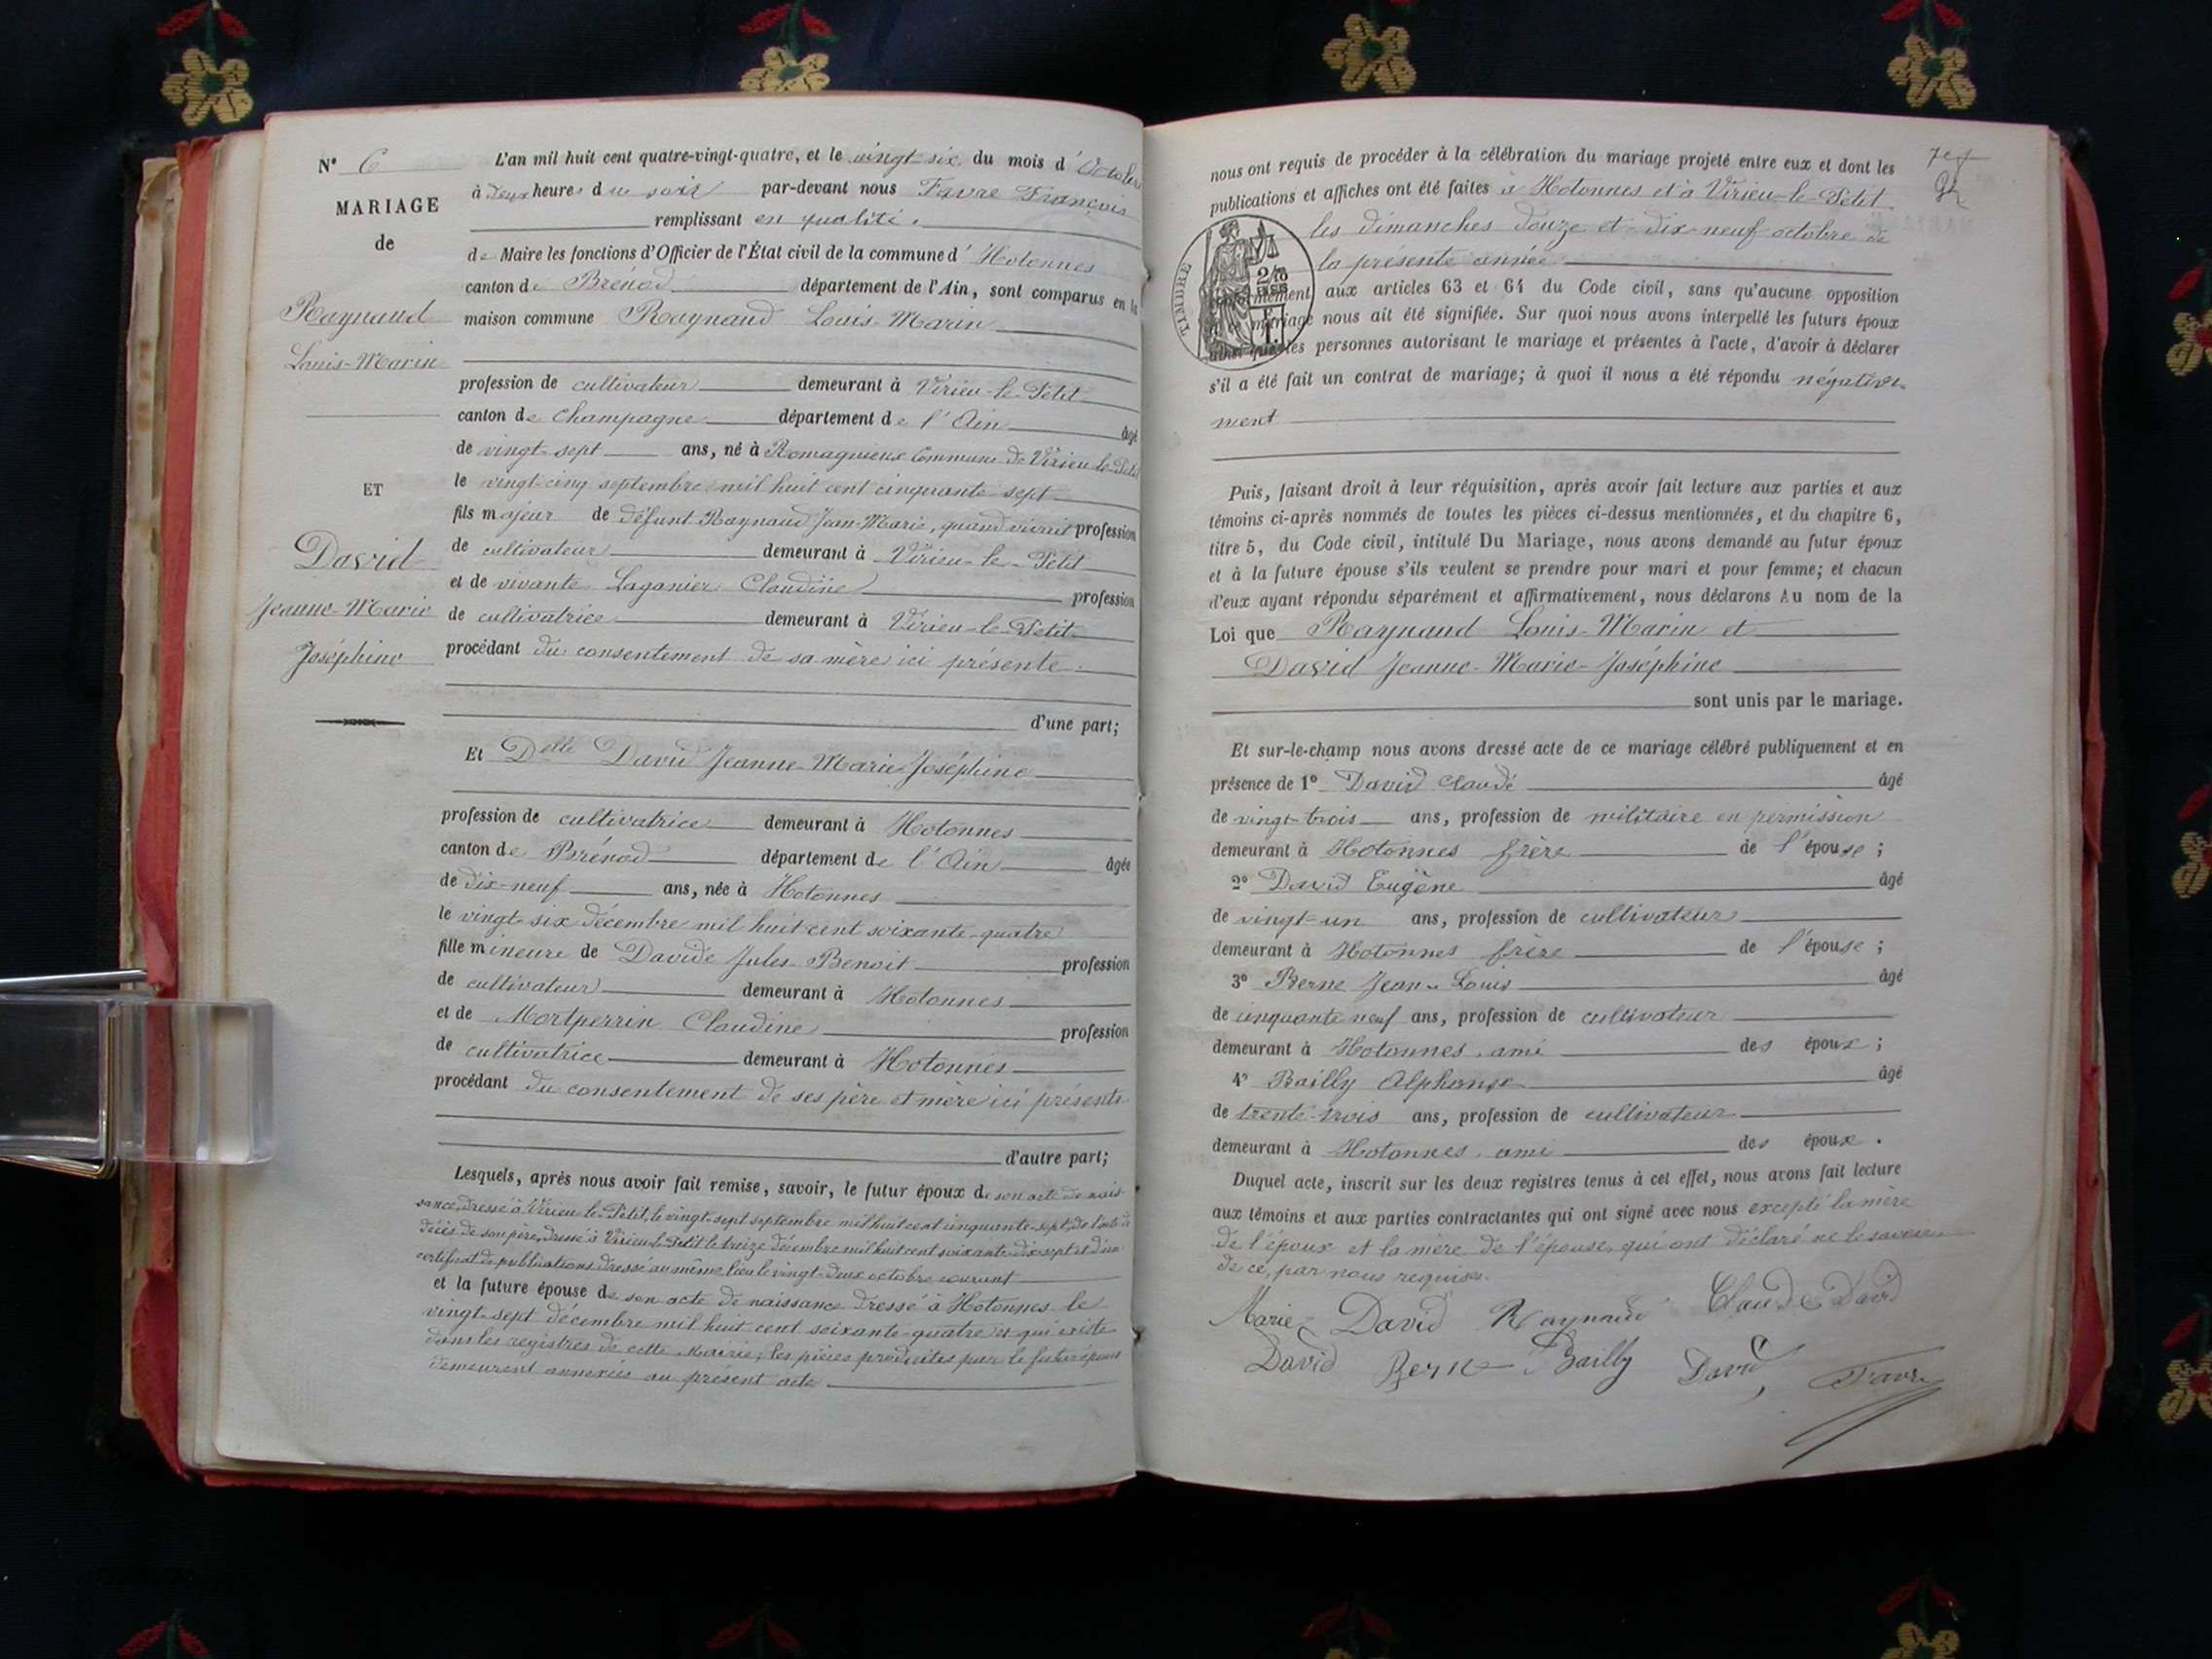 N° 6
MARIAGE
de
Raynaud
Louis-Marin
ET
David
Jeanne-Marie
Joséphine
L'an mil huit cent quatre-vingt-quatre, et le vingt-six du mois d'Octobre
à deux heures du soir par-devant nous Favre François
remplissant en qualité
de Maire les fonctions d'Officier de l'État civil de la commune d'Hotonnes
canton de Brénod département de l'Ain, sont comparus en la
maison commune Raynaud Louis-Marin
profession de cultivateur demeurant à Virieu-le-Petit
canton de Champagne département de l'Ain âgé
de vingt-sept ans, né à Romagnieux Commune de Virieu-le-Petit
le vingt-cinq septembre mil huit cent cinquante-sept
fils majeur de défunt Raynaud Jean-Marie, quand vivait profession
de cultivateur demeurant à Virieu-le-Petit
et de vivante Laganier Claudine profession
de cultivatrice demeurant à Virieu-le-Petit
procédant du consentement de sa mère ici présente.
d'une part;
Et Delle David Jeanne-Marie-Joséphine
profession de cultivatrice demeurant à Hotonnes
canton de Brénod département de l'Ain âgée
de dix-neuf ans, née à Hotonnes
le vingt-six décembre mil huit cent soixante-quatre
fille mineure de Davide Jules Benoit profession
de cultivateur demeurant à Hotonnes
et de Mortperrin Claudine profession
de cultivatrice demeurant à Hotonnes
procédant du consentement de ses père et mère ici présents
d'autre part;
Lesquels, après nous avoir fait remise, savoir, le futur époux de son acte de nais-
sance, dressé à Virieu-le-Petit, le vingt-sept septembre mil huit cent cinquante-sept, de l'acte de
décès de son père, dressé à Virieu-le-Petit le treize décembre mil huit cent soixante-dix-sept et d'un
certificat de publications dressé au même lieu le vingt-deux octobre courant
et la future épouse de son acte de naissance dressé à Hotonnes le
vingt-sept décembre mil huit cent soixante-quatre et qui existe
dans les registres de cette Mairie; les pièces produites par le futur époux
demeurent annexées au présent acte
nous ont requis de procéder à la célébration du mariage projeté entre eux et dont les
publications et affiches ont été faites à Hotonnes et à Virieu-le-Petit
les dimanches douze et dix-neuf octobre de
la présente année
TIMBRE
conformément aux articles 63 et 64 du Code civil, sans qu'aucune opposition
mariage nous ait été signifiée. Sur quoi nous avons interpellé les futurs époux
ainsi que les personnes autorisant le mariage et présentes à l'acte, d'avoir à déclarer
s'il a été fait un contrat de mariage; à quoi il nous a été répondu négative-
ment
Puis, faisant droit à leur réquisition, après avoir fait lecture aux parties et aux
témoins ci-après nommés de toutes les pièces ci-dessus mentionnées, et du chapitre 6,
titre 5, du Code civil, intitulé Du Mariage, nous avons demandé au futur époux
et à la future épouse s'ils veulent se prendre pour mari et pour femme; et chacun
d'eux ayant répondu séparément et affirmativement, nous déclarons Au nom de la
Loi que Raynaud Louis-Marin et
David Jeanne-Marie-Joséphine
sont unis par le mariage.
Et sur-le-champ nous avons dressé acte de ce mariage célébré publiquement et en
présence de 1° David Claude âgé
de vingt-trois ans, profession de militaire en permission
demeurant à Hotonnes frère de l'épouse;
2° David Eugène âgé
de vingt-un ans, profession de cultivateur
demeurant à Hotonnes frère de l'épouse;
3° Berne Jean-Louis âgé
de cinquante neuf ans, profession de cultivateur
demeurant à Hotonnes, ami des époux;
4° Bailly Alphonse âgé
de trente-trois ans, profession de cultivateur
demeurant à Hotonnes, ami des époux.
Duquel acte, inscrit sur les deux registres tenus à cet effet, nous avons fait lecture
aux témoins et aux parties contractantes qui ont signé avec nous excepté la mère
de l'époux et la mère de l'épouse, qui ont déclaré ne le savoir
de ce, par nous requises.
Marie David Raynaud Claude David
David Berne Bailly David Favre